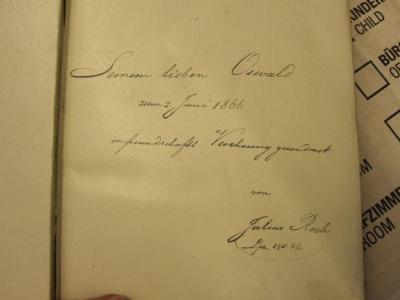 Seinem lieben Oswald
zum 2 Juni 1866
in freundschaftl. Verehrung gewidmet
von
Julius
KINDER
CHILD
BÜR
OF
FZIMME
ROOM